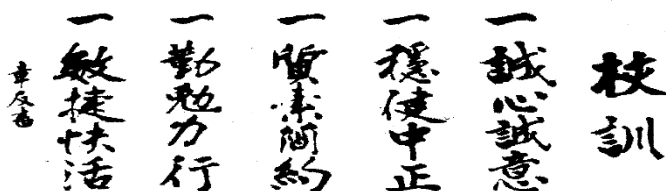 校訓
一誠心誠意
一穏健中正
一質素簡約
一勤勉力行
一敏捷快活